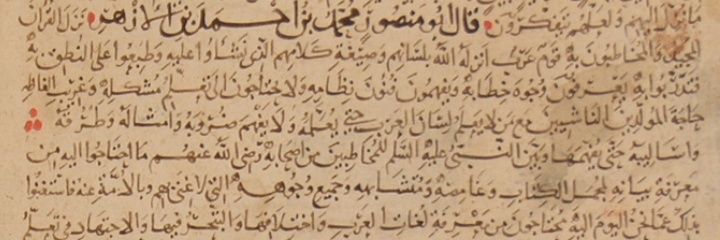 ما نزل اليهم ولعلهم يتفكرون قال ابو منصور محمد بن احمد بن الازهر نزل القران
المجيد والمخاطبون به قوم عرب انزله الله بلسانهم وصيغة كلامهم الذي نشاوا عليه وطبعوا على النطق به
فتدربوا به يعرفون وجوه خطابه ويفهمون فنون نظامه ولا يحتاجون الى تعلم مشكله وغريب الفاظه
حاجة المولدين الناشيين مع من لا يعلم لسان العرب حتى يعلمه ولا يفهم ضروبه وامثاله وطرقه
واساليبه حتى يفهمها وبين النبي عليه السلم للمخاطبين من اصحابه رضي الله عنهم ما احتاجوا اليه من
معرفة بيانه لمجمل الكتاب وغامضه ومتشابهه وجميع وجوهه التي لا غنى بهم وبالامة عنه فاستغنوا
بذلك عما نحن اليوم اليه محتاجون من معرفة لغات العرب واختلافها والتبحر فيها والاجتهاد في تعلم